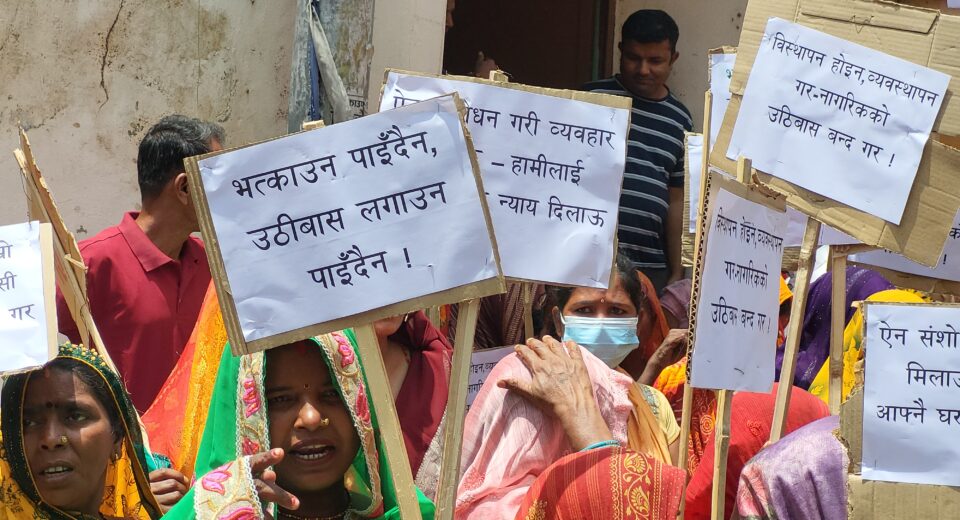 गर
भत्काउन पाइँदैन,
उठीबास लगाउन
पाइँदैन !
गरी व्यवहार
– हामीलाई
न्याय दिलाऊ
विस्थापन होइन, व्यवस्थापन
गर-नागरिकको
उठिबास बन्द गर !
विस्थापन होइन, व्यवस्थापन
गर-नागरिकको
उठिबास बन्द गर !
ऐन
आफ्नै